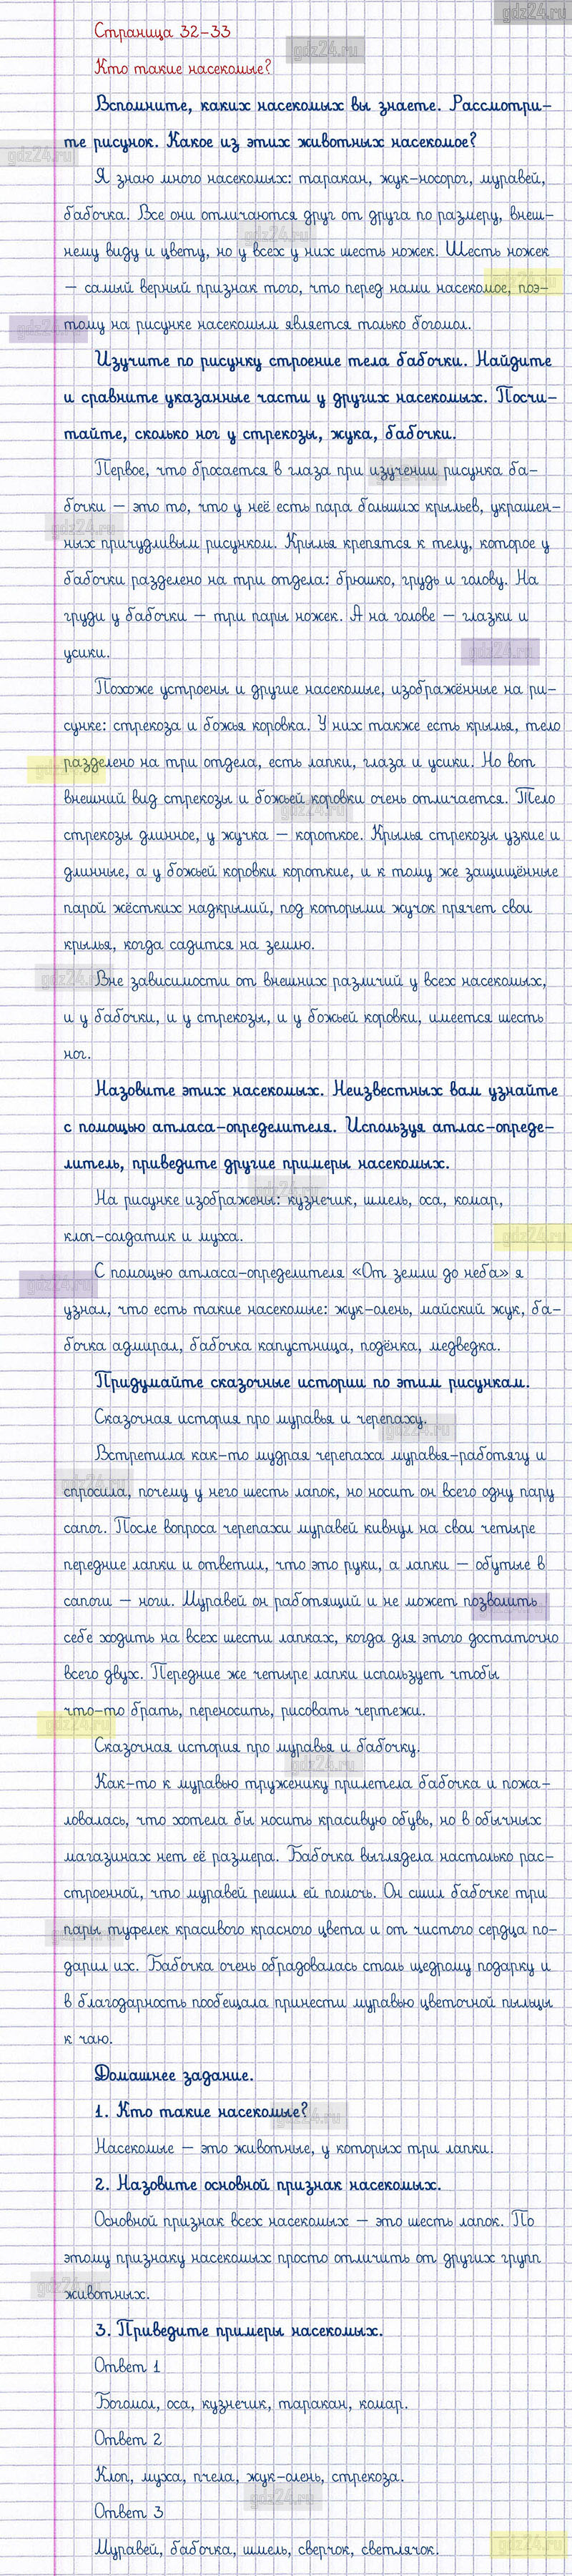 gdz24.ru
Страница 32-33
gdz24.ru
Кто такие насекомые?
Вспомните, каких насекомых вы знаете. Рассмотри-
те рисунок. Какое из этих животных насекомое?
gdz24.ru
Я знаю много насекомых: таракан, жук-носорог, муравей,
бабочка. Все они отличаются друг от друга по размеру, внеш-
gdz24.ru
нему виду и цвету, но у всех у них шесть ножек. Шесть ножек
gdz24.ru
— самый верный признак того, что перед нами насекомое, поэ-
gdz24.ru
тому на рисунке насекомым является только богомол.
Изучите по рисунку строение тела бабочки. Найдите
и сравните указанные части у других насекомых. Посчи-
тайте, сколько ног у стрекозы, жука, бабочки.
Первое, что бросается в глаза при изучении рисунка ба-
бочки — это то, что у неё есть пара больших крыльев, украшен-
gdz24.ru
ных причудливым рисунком. Крылья крепятся к телу, которое у
бабочки разделено на три отдела: брюшко, грудь и голову. На
груди у бабочки — три пары ножек. А на голове — глазки и
усики.
gdz24.ru
Похоже устроены и другие насекомые, изображённые на ри-
сунке: стрекоза и божья коровка. У них также есть крылья, тело
разделено на три отдела, есть лапки, глаза и усики. Но вот
внешний вид стрекозы и божьей коровки очень отличается. Тело
gdz24.ru
стрекозы длинное, у жучка — короткое. Крылья стрекозы узкие и
длинные, а у божьей коровки короткие, и к тому же защищённые
парой жёстких надкрылий, под которыми жучок прячет свои
крылья, когда садится на землю.
gdz24.ru
Вне зависимости от внешних различий у всех насекомых,
и у бабочки, и у стрекозы, и у божьей коровки, имеется шесть
ног.
Назовите этих насекомых. Неизвестных вам узнайте
с помощью атласа-определителя. Используя атлас-опреде-
литель, приведите другие примеры насекомых.
gdz24.ru
На рисунке изображены: кузнечик, шмель, оса, комар,
клоп-солдатик и муха.
gdz24.ru
С помощью атласа-определителя «От земли до неба» я
gdz24.ru
узнал, что есть такие насекомые: жук-олень, майский жук, ба-
бочка адмирал, бабочка капустница, подёнка, медведка.
Придумайте сказочные истории по этим рисункам.
Сказочная история про муравья и черепаху.
gdz24.ru
Встретила как-то мудрая черепаха муравья-работягу и
gdz24.ru
спросила, почему у него шесть лапок, но носит он всего одну пару
сапог. После вопроса черепахи муравей кивнул на свои четыре
передние лапки и ответил, что это руки, а лапки — обутые в
сапоги — ноги. Муравей он работящий и не может позволить
себе ходить на всех шести лапках, когда для этого достаточно
всего двух. Передние же четыре лапки использует чтобы
что-то брать, переносить, рисовать чертежи.
gdz24.ru
Сказочная история про муравья и бабочку.
gdz24.ru
Как-то к муравью труженику прилетела бабочка и пожа-
ловалась, что хотела бы носить красивую обувь, но в обычных
магазинах нет её размера. Бабочка выглядела настолько рас-
строенной, что муравей решил ей помочь. Он сшил бабочке три
пары туфелек красивого красного цвета и от чистого сердца по-
дарил их. Бабочка очень обрадовалась столь щедрому подарку и
в благодарность пообещала принести муравью цветочной пыльцы
к чаю.
Домашнее задание.
1. Кто такие насекомые?
gdz24.ru
Насекомые — это животные, у которых три лапки.
2. Назовите основной признак насекомых.
Основной признак всех насекомых — это шесть лапок. По
этому признаку насекомых просто отличить от других групп
gdz24.ru
животных.
3. Приведите примеры насекомых.
Ответ 1
Богомол, оса, кузнечик, таракан, комар.
Ответ 2
Клоп, муха, пчела, жук-олень, стрекоза.
gdz24.ru
Ответ 3
gdz24.ru
Муравей, бабочка, шмель, сверчок, светлячок.